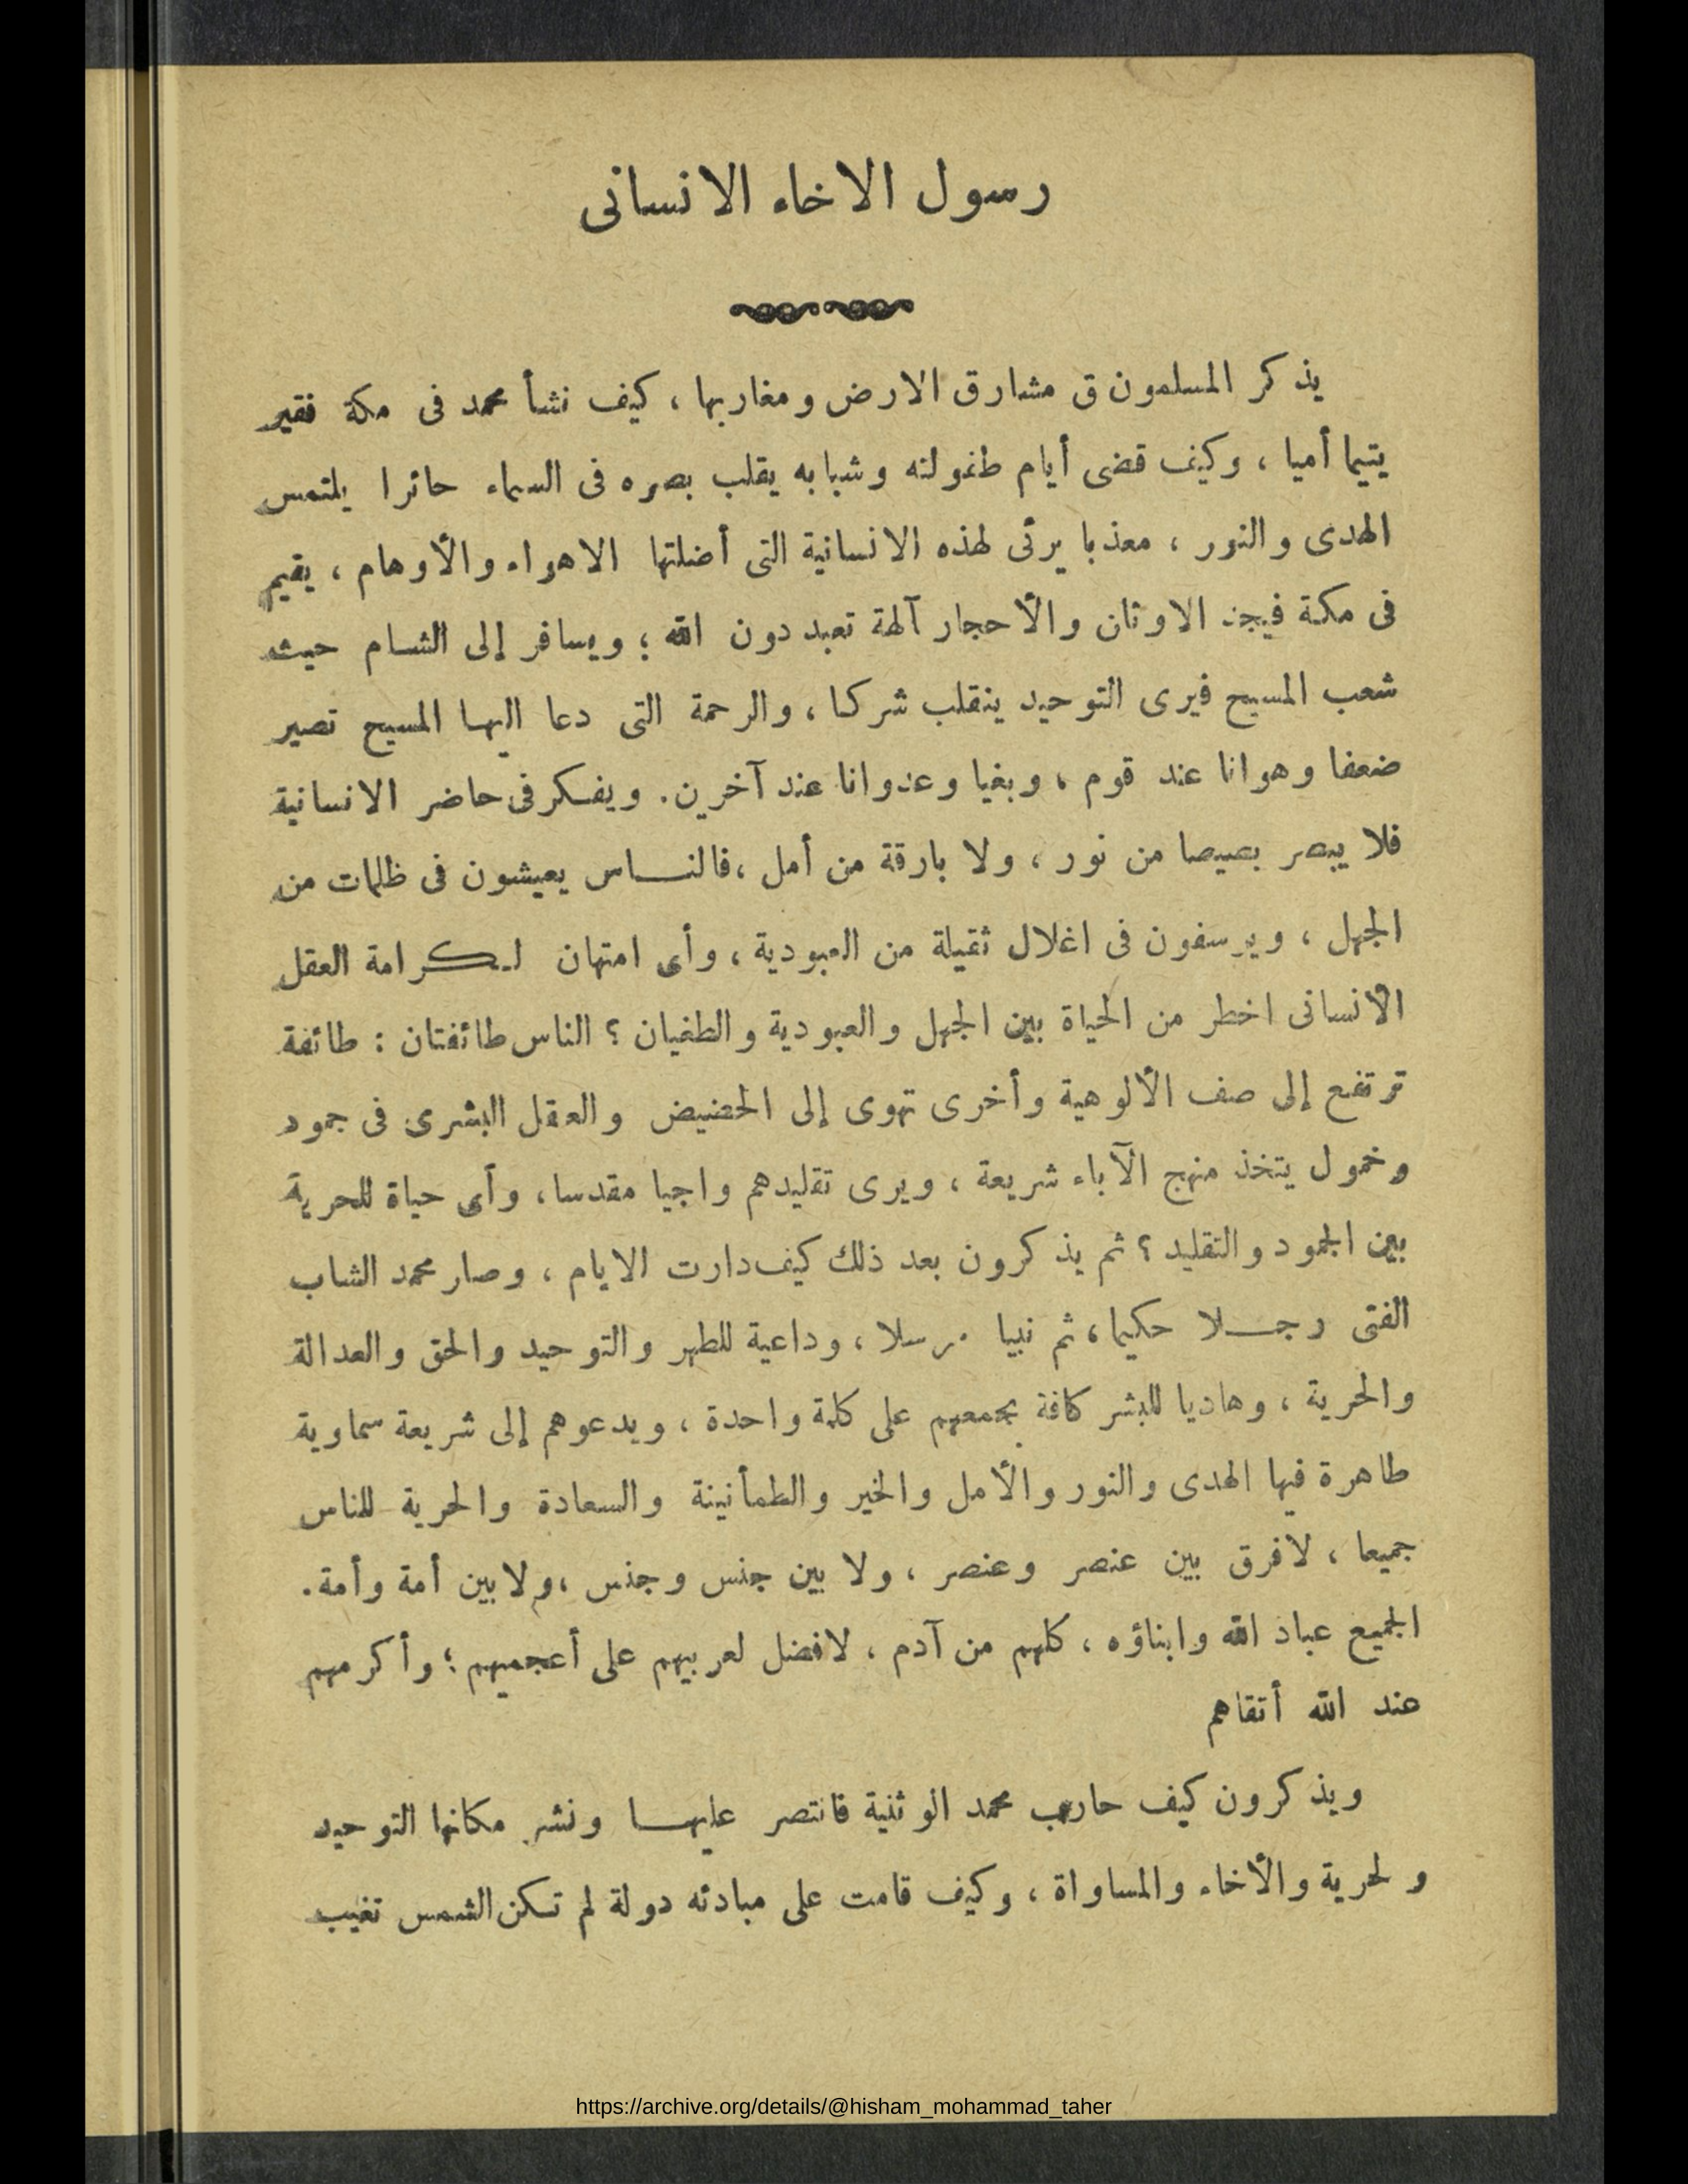 رسول الاخاء الانسانى
يذكر المسلمون ق مشارق الارض ومغاربها ، كيف نشأ محمد فى مكة فقير
يتيما أميا ، وكيف قضى أيام طفولته وشبابه يقلب بصره فى السماء حائرا يلتمس
الهدى والنور ، معذبا يرثى لهذه الانسانية التى أضلتها الاهواء والأوهام ، يقيم
فى مكة فيجد الاوثان والأحجار آلهة تعبد دون الله ؛ ويسافر إلى الشام حيث
شعب المسيح فيرى التوحيد ينقلب شركا ، والرحمة التى دعا اليها المسيح تصير
ضعفا وهوانا عند قوم ، وبغيا وعدوانا عند آخرين. ويفكر فى حاضر الانسانية
فلا يبصر بصيصا من نور ، ولا بارقة من أمل ، فالناس يعيشون فى ظلمات من
الجهل ، ويرسفون فى اغلال ثقيلة من العبودية ، وأى امتهان لكرامة العقل
الانسانى اخطر من الحياة بين الجهل والعبودية والطغيان ؟ الناس طائفتان : طائفة
ترتفع إلى صف الألوهية وأخرى تهوى إلى الحضيض والعقل البشرى فى جمود
وخمول يتخذ منهج الآباء شريعة ، ويرى تقليدهم واجبا مقدسا ، وأى حياة للحرية
بين الجمود والتقليد ؟ ثم يذكرون بعد ذلك كيف دارت الايام ، وصار محمد الشاب
الفتى رجلا حكيما ، ثم نبيا مرسلا ، وداعية للطهر والتوحيد والحق والعدالة
والحرية ، وهاديا للبشر كافة يجمعهم على كلمة واحدة ، ويدعوهم إلى شريعة سماوية
طاهرة فيها الهدى والنور والأمل والخير والطمأنينة والسعادة والحرية للناس
جميعا ، لافرق بين عنصر وعنصر ، ولا بين جنس وجنس ، ولا بين أمة وأمة.
الجميع عباد الله وابناؤه ، كلهم من آدم ، لافضل لعربيهم على أعجميهم ؛ وأكرمهم
عند الله أتقاهم
ويذكرون كيف حارب محمد الوثنية فانتصر عليها ونشر مكانها التوحيد
و لحرية والأخاء والمساواة ، وكيف قامت على مبادئه دولة لم تكن الشمس تغيب
https://archive.org/details/@hisham_mohammad_taher